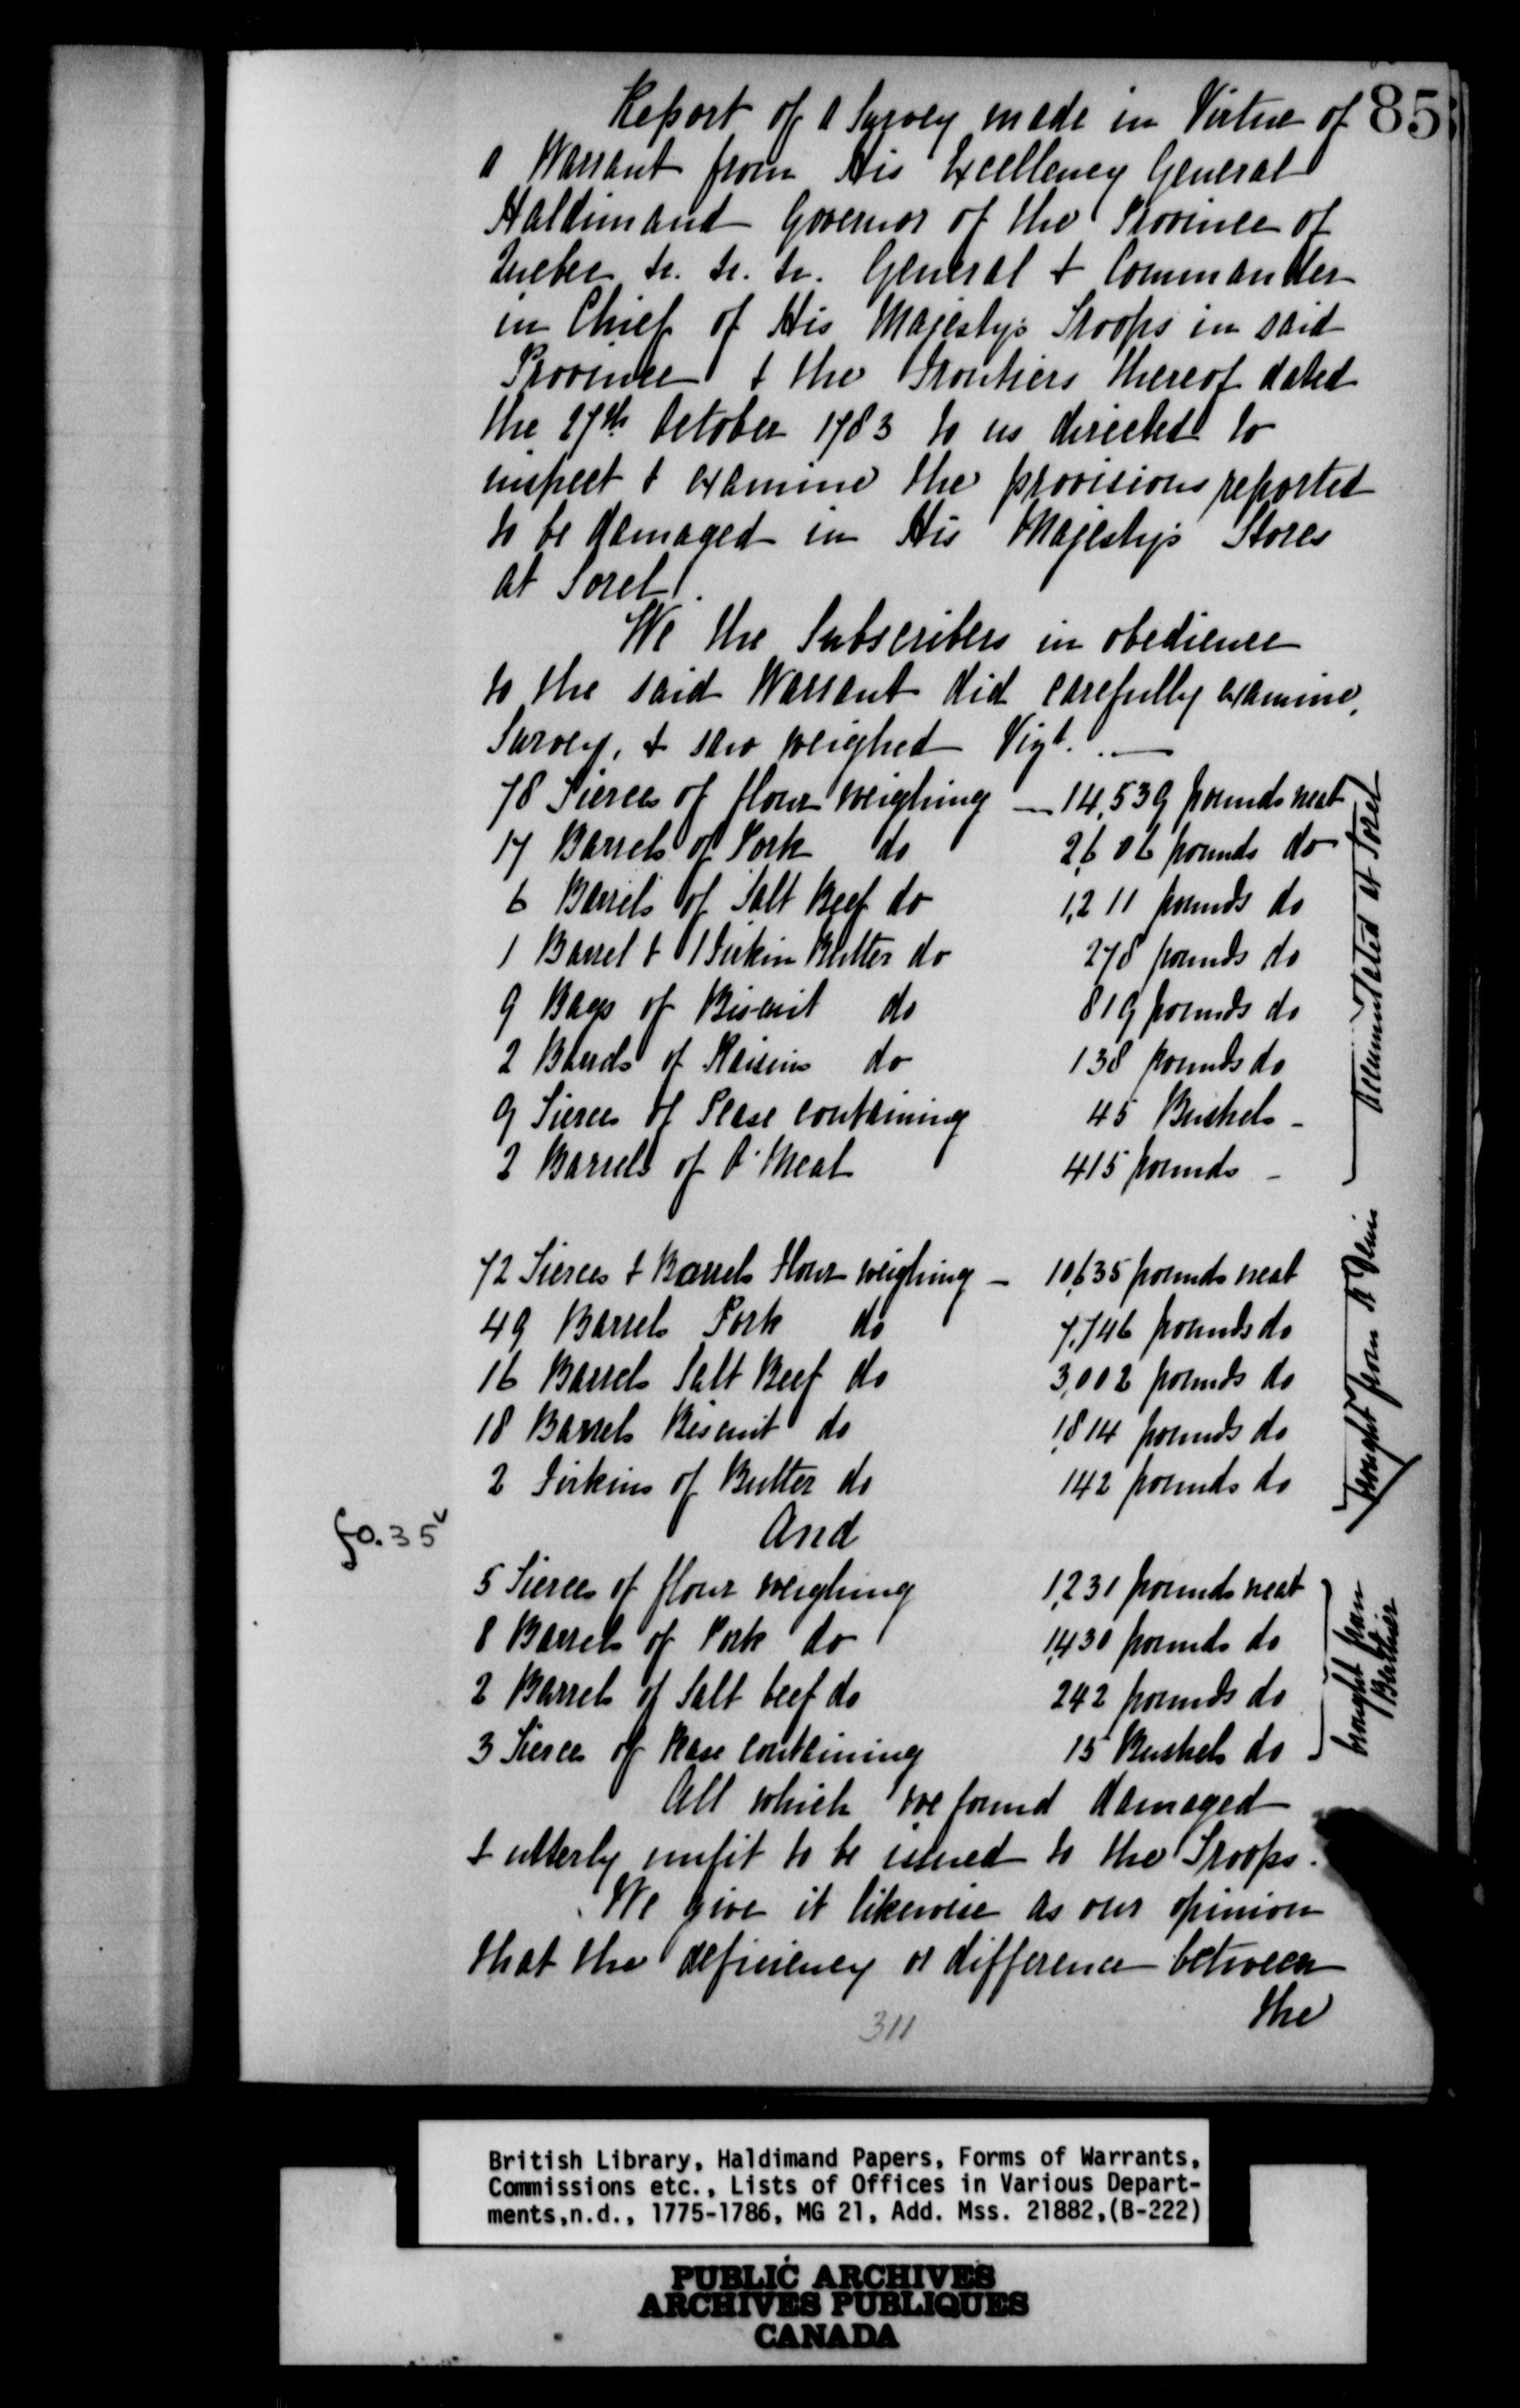 85
Report of a Survey made in Virtue of
a Warrant from His Excellency General
Haldimand Governor of the Province of
Quebec &c. &c. &c. General & Commander
in Chief of His Majesty's Troops in said
Province & the Frontiers thereof dated
the 27th October 1783 to us directed to
inspect & examine the provisions reported
to be damaged in His Majesty's Stores
at Sorel.
We the Subscribers in obedience
to the said Warrant did carefully examine,
Survey, & saw weighed Vizt. —
78 Tierces of flour weighing — 14,539 pounds neat
17 Barrels of Pork do 2,606 pounds do
6 Barrels of Salt Beef do 1,211 pounds do
1 Barrel & 1 Firkin Butter do 278 pounds do
9 Bags of Biscuit do 819 pounds do
2 of Raisins do 138 pounds do
9 Tierces of Pease containing 45 Bushels -
2 Barrels of O'Meal 415 pounds -
Accumulated at Sorel
72 Tierces & Barrels flour weighing — 10,635 pounds neat
49 Barrels Pork do 7,746 pounds do
16 Barrels Salt Beef do 3,002 pounds do
18 Barrels Biscuit do 1,814 pounds do
2 Firkins of Butter do 142 pounds do
brought from
fo. 35v
And
5 Tierces of flour weighing 1,231 pounds neat
8 Barrels of Pork do 1,430 pounds do
2 Barrels of Salt beef do 242 pounds do
3 Tierces of Pease containing 15 Bushels do
brought from
Berthier
All which we found damaged
& utterly unfit to be issued to the Troops.
We give it likewise as our opinion
that the deficiency or difference between
the
311
British Library, Haldimand Papers, Forms of Warrants,
Commissions etc., Lists of Offices in Various Depart-
ments,n.d., 1775-1786, MG 21, Add. Mss. 21882,(B-222)
PUBLIC ARCHIVES
ARCHIVES PUBLIQUES
CANADA